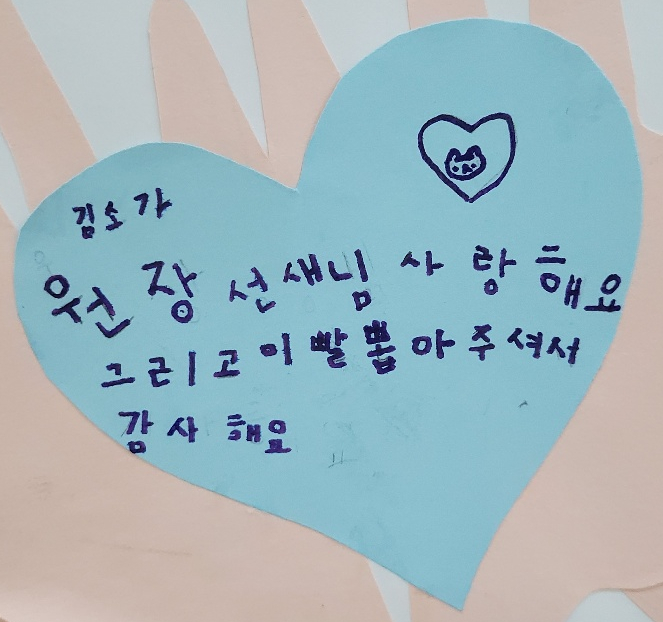 김소가
원장선생님 사랑해요
그리고 이빨 뽑아주셔서
감사해요